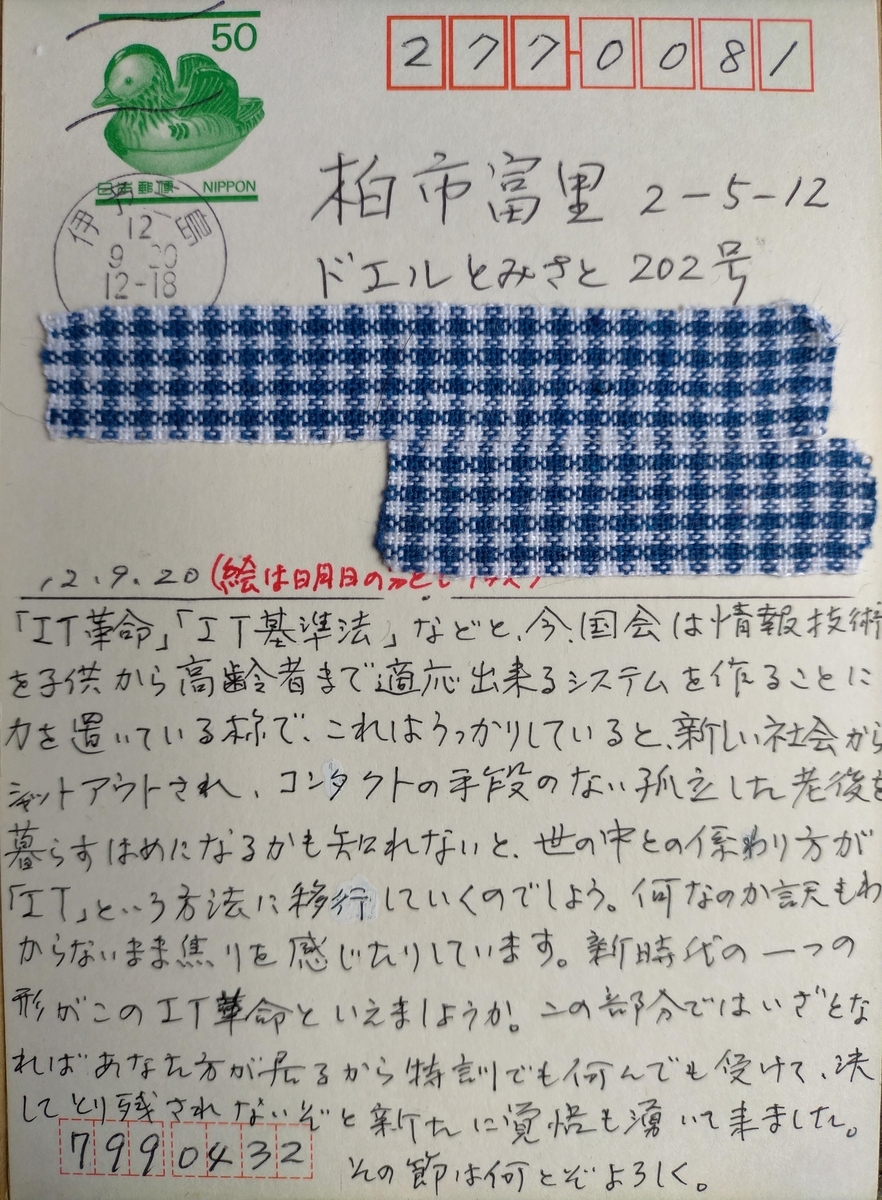 50
277-0081
日本郵便 NIPPON
伊予三島
12
9 20
12-18
柏市富里 2-5-12
ドエルとみさと 202号
12.9.20 (絵は明日の
「IT革命」「IT基準法」などと、今、国会は情報技術
を子供から高齢者まで適応出来るシステムを作ることに
力を置いている様で、これはうっかりしていると、新しい社会から
シャットアウトされ、コンタクトの手段のない孤立した老後を
暮らすはめになるかも知れないと、世の中との係わり方が
「IT」という方法に移行していくのでしょう。何なのか訳もわ
からないまま焦りを感じたりしています。新時代の一つの
形がこのIT革命といえましょうか。この部分ではいざとな
ればあなた方が居るから特訓でも何んでも受けて、決
してとり残されないぞと新たに覚悟も湧いて来ました。
その節は何とぞよろしく。
7990432